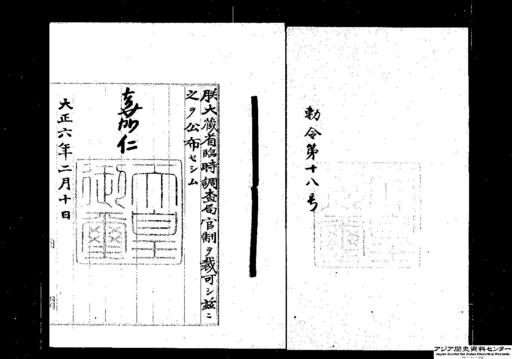 勅令第十八号
朕大蔵省臨時調査局官制ヲ裁可シ茲ニ
之ヲ公布セシム
嘉仁
天皇
御璽
大正六年二月十日
アジア歴史資料センター
Japan Center for Asian Historical Records